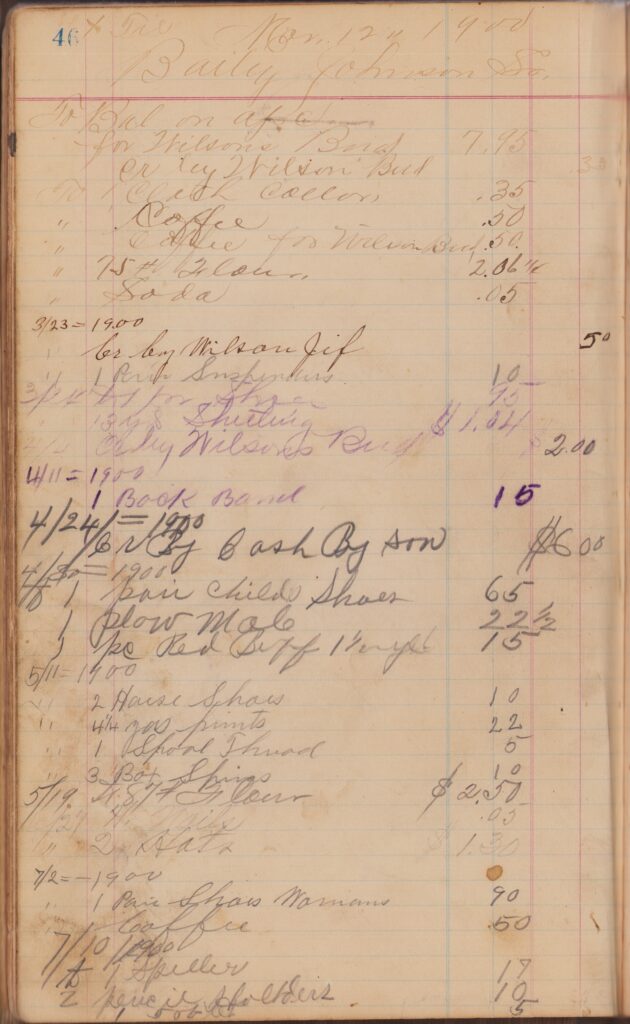 46 x
Mar 12 1900
Baily Johnson
To Bal on
for Wilson's Bud 7.95
Cr by Wilson Bud
.35
" Coffee .50
" Coffee for Wilson Bud .50
" 75 # Flour 2.06 1/4
" Soda .05
3/23 = 1900
" Cr by Wilson Jif 50
" 1 Pair Suspenders 10
95
13 yds Shirting $1.04
Cr by Wilson's Bud $2.00
4/11 = 1900
1 Back Band 15
4/24/ = 1900
Cr By Cash By son $6 00
4/30 = 1900
To 1 pair Childs Shoes 65
1 plow 22 1/2
1 pc Red 15
5/11 = 1900
" 2 Horse Shoes 10
" 4 1/4 yds prints 22
" 1 Spool Thread 5
" 3 Box 10
5/19 Flour $ 2.50
.05
" 2 Hats 1.30
7/2 = 1900
" 1 Pair Shoes Womans 90
" 1 Coffee 50
7/10/1900
To 1 Speller 17
2 pencil holders 10
5